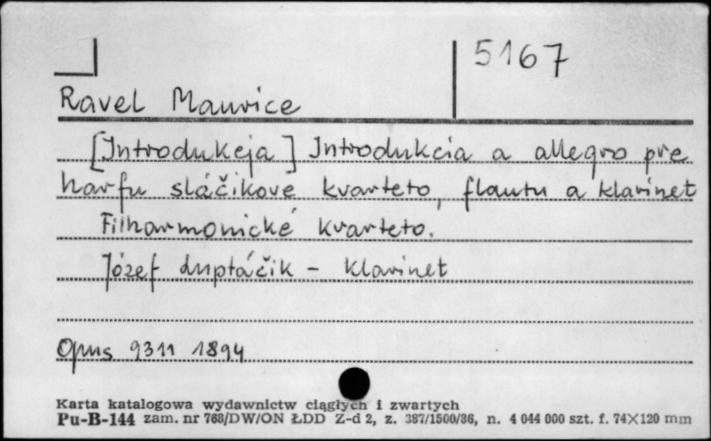 5167
Ravel Maurice
[Introdukcja] Introdukcia a allegro pre
harfu sláčikové kvarteto, flautu a klarinet
Filharmonické kvarteto.
Józef Luptáčik - klarinet
Opus 9311 1894
Karta katalogowa wydawnictw ciągłych i zwartych
Pu-B-144 zam. nr 768/DW/ON ŁDD Z-d 2, z. 387/1500/86, n. 4 044 000 szt. f. 74×120 mm